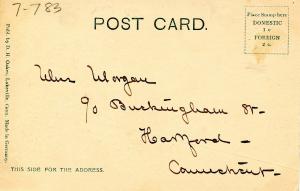 7-783
POST CARD.
Place Stamp here
DOMESTIC
1c
FOREIGN
2c
Publ. by D. H. Oakes, Lakeville, Conn. Made in Germany.
Morgan
90 Buckingham St-
Hartford-
Connecticut-
THIS SIDE FOR THE ADDRESS.